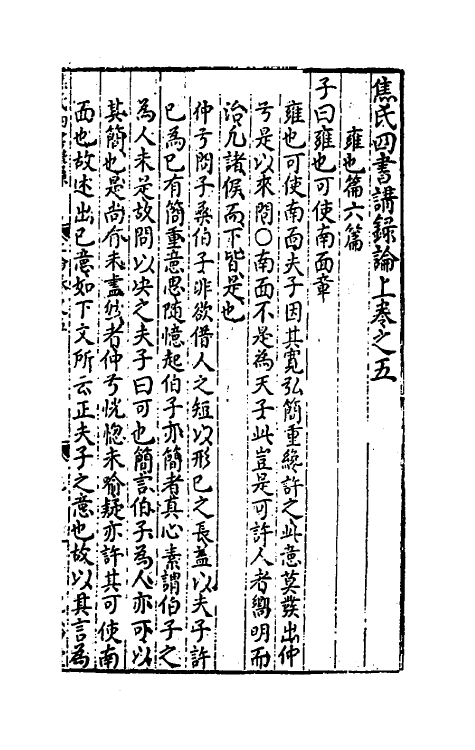 焦氏四書講録論上卷之五
雍也篇六篇
子曰雍也可使南面章
雍也可使南面夫子因其寬弘簡重緫許之此意莫發出仲
弓是以來問〇南面不是為天子此豈是可許人者嚮明而
治凡諸侯而下皆是也
仲弓問子桑伯子非欲借人之短以形已之長蓋以夫子許
已為已有簡重意思随憶起伯子亦簡者真心素謂伯子之
為人未是故問以决之夫子曰可也簡言伯子為人亦可以
其簡也是尚有未盡然者仲弓恍惚未喻疑亦許其可使南
面也故述出已意如下文所云正夫子之意也故以其言為